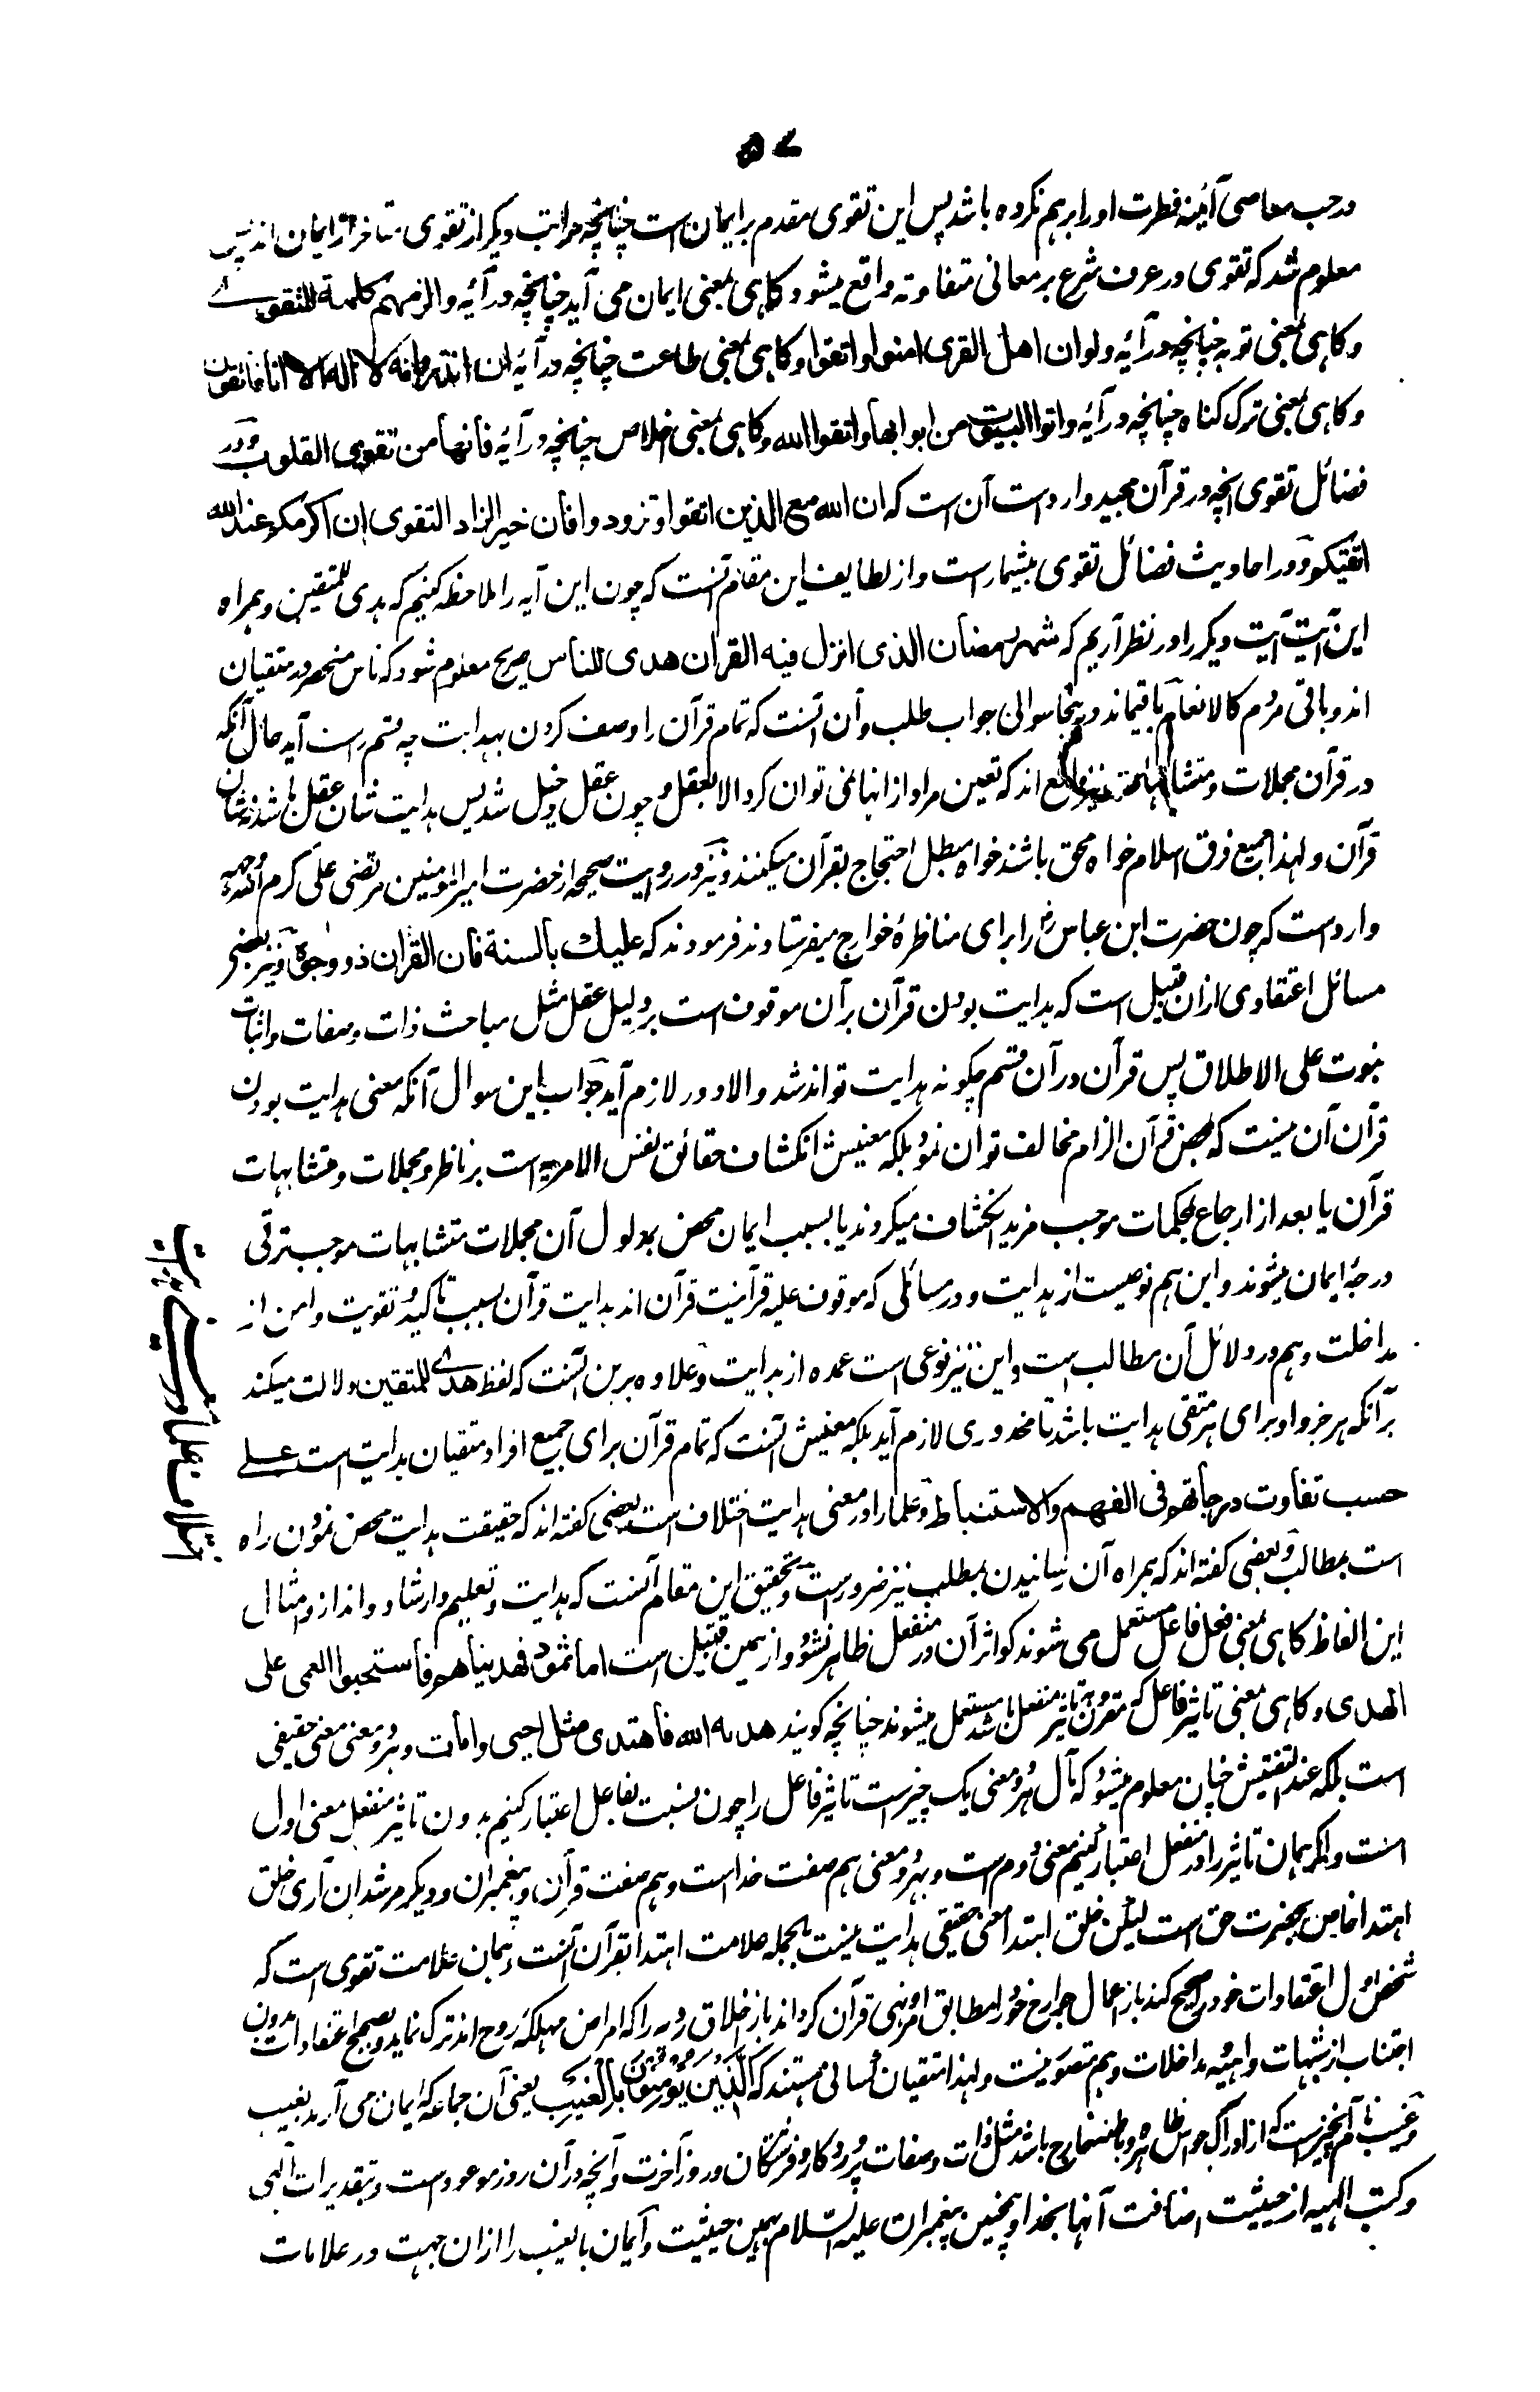 ۵۷
در حب معاصی آئینه فطرت او را برهم نکرده باشد پس این تقوی مقدم بر ایمان است چنانچه مراتب دیگر از تقوی متاخر از ایمان اند پس
معلوم شد که تقوی در عرف شرع بر معانی متفاوته واقع میشود گاهی بمعنی ایمان می آید چنانچه در آئیه والزمهم کلمة التقوی
و گاهی بمعنی توبه چنانچه در آئیه ولو ان اهل القری امنوا واتقوا و گاهی بمعنی طاعت چنانچه در آئیه ان انذروا انه لا اله الا انا فاتقون
و گاهی بمعنی ترک گناه چنانچه در آئیه واتوا البیوت من ابوابها واتقوا الله و گاهی بمعنی اخلاص چنانچه در آئیه فانها من تقوی القلوب و در
فضائل تقوی آنچه در قرآن مجید وارد است آن است که ان الله مع الذین اتقوا وتزودوا فان خیر الزاد التقوی ان اکرمکم عند الله
اتقیکم و در احادیث فضائل تقوی بیشمار است و از لطایف این مقام آنست که چون این آیه را ملاحظه کنیم که هدی للمتقین و همراه
این آیت آیت دیگر را در نظر آریم که شهر رمضان الذی انزل فیه القران هدی للناس صریح معلوم شود که ناس منحصر در متقیان
اند و باقی مردم کالانعام باقیماند در اینجا سوالی جواب طلب و آن آنست که تمام قرآن را وصف کردن بهدایت چه قسم راست آید حال آنکه
در قرآن مجملات و متشابهات نیز واقع اند که تعین مراد از انها نمی توان کرد الا بعقل و چون عقل دخیل شد پس هدایت شان عقل باشد نه شان
قرآن و لهذا جمیع فرق اسلام خواه محق باشند خواه مبطل احتجاج بقرآن میکنند و نیز در روایت صحیحه از حضرت امیر المؤمنین مرتضی علی کرم الله وجهه
وارد است که چون حضرت ابن عباس رض را برای مناظرهٔ خوارج میفرستادند فرمودند که علیک بالسنة فان القران ذو وجوه و نیز بعضی
مسائل اعتقادی ازان قبیل است که هدایت بودن قرآن برآن موقوف است بر دلیل عقل مثل مباحث ذات و صفات و اثبات
نبوت علی الاطلاق پس قرآن در آن قسم چگونه هدایت تواند شد و الا دور لازم آید جواب این سوال آنکه معنی هدایت بودن
قرآن آن نیست که بمحض قرآن الزام مخالف توان نمود بلکه معنیش انکشاف حقائق نفس الامریه است بر ناظر و مجملات و متشابهات
قرآن یا بعد از ارجاع بمحکمات موجب مزید انکشاف میگردند یا بسبب ایمان محض بمدلول آن مجملات متشابهات موجب ترقی
درجهٔ ایمان میشوند و این هم نوعیست از هدایت و در مسائلی که موقوف علیه قرآنیت قرآن اند هدایت قرآن بسبب تاکید و تقویت و امن از
مداخلت وهم در دلائل آن مطالب است و این نیز نوعی است عمده از هدایت و علاوه برین آنست که لفظ هدی للمتقین دلالت میکند
برآنکه هر جزو او برای هر متقی هدایت باشد تا محذوری لازم آید بلکه معنیش آنست که تمام قرآن برای جمیع افراد متقیان هدایت است علی
حسب تفاوت درجاتهم فی الفهم والاستنباط و علما را در معنی هدایت اختلاف است بعضی گفته اند که حقیقت هدایت محض نمودن راه
است بمطالب و بعضی گفته اند که همراه آن رسانیدن بمطلب نیز ضرور است و تحقیق این مقام آنست که هدایت و تعلیم و ارشاد و انذار و امثال
این الفاظ گاهی بمعنی فعل فاعل مستعمل می شوند گو اثر آن در منفعل ظاهر نشود و از همین قبیل است اما ثمود فهدیناهم فاستحبوا العمی علی
الهدی و گاهی بمعنی تاثیر فاعل که مقرون بتاثر منفعل باشد مستعمل میشوند چنانچه گویند هداه الله فاهتدی مثل احیی و امات و هر دو معنی معنی حقیقی
است بلکه عند التفتیش چنان معلوم میشود که مآل هر دو معنی یک چیز است تاثیر فاعل را چون نسبت بفاعل اعتبار کنیم بدون تاثر منفعل معنی اول
است و اگر همان تاثیر را در منفعل اعتبار کنیم معنی دوم است و بهر دو معنی هم صفت خداست و هم صفت قرآن و پیغمبران و دیگر مرشدان آری خلق
اهتدا خاص بحضرت حق است لیکن خلق اهتدا معنی حقیقی هدایت نیست بالجمله علامت اهتدا بقرآن آنست و همان علامت تقوی است که
شخص اول اعتقادات خود را صحیح کند باز اعمال جوارح خود را مطابق امر و نهی قرآن گرداند باز اخلاق ردیه را که امراض مهلکهٔ روح اند ترک نماید و تصحیح اعتقادات بدون
اجتناب از شبهات واهیه و مداخلات وهم متصور نیست و لهذا متقیان کسانی هستند که الَّذِينَ يُؤْمِنُونَ بِالْغَيْبِ یعنی آن جماعه که ایمان می آرند بغیب
و غیب نام آنچیز است که از ادراک حواس ظاهره و باطنه خارج باشد مثل ذات و صفات پروردگار و فرشتگان و روز آخرت و آنچه در آن روز موعود است و تقدیرات الهی
و کتب الهیه از حیثیت اضافت آنها بخدا و همچنین پیغمبران علیهم السلام بهمین حیثیت و ایمان بالغیب را ازان جهت در علامات